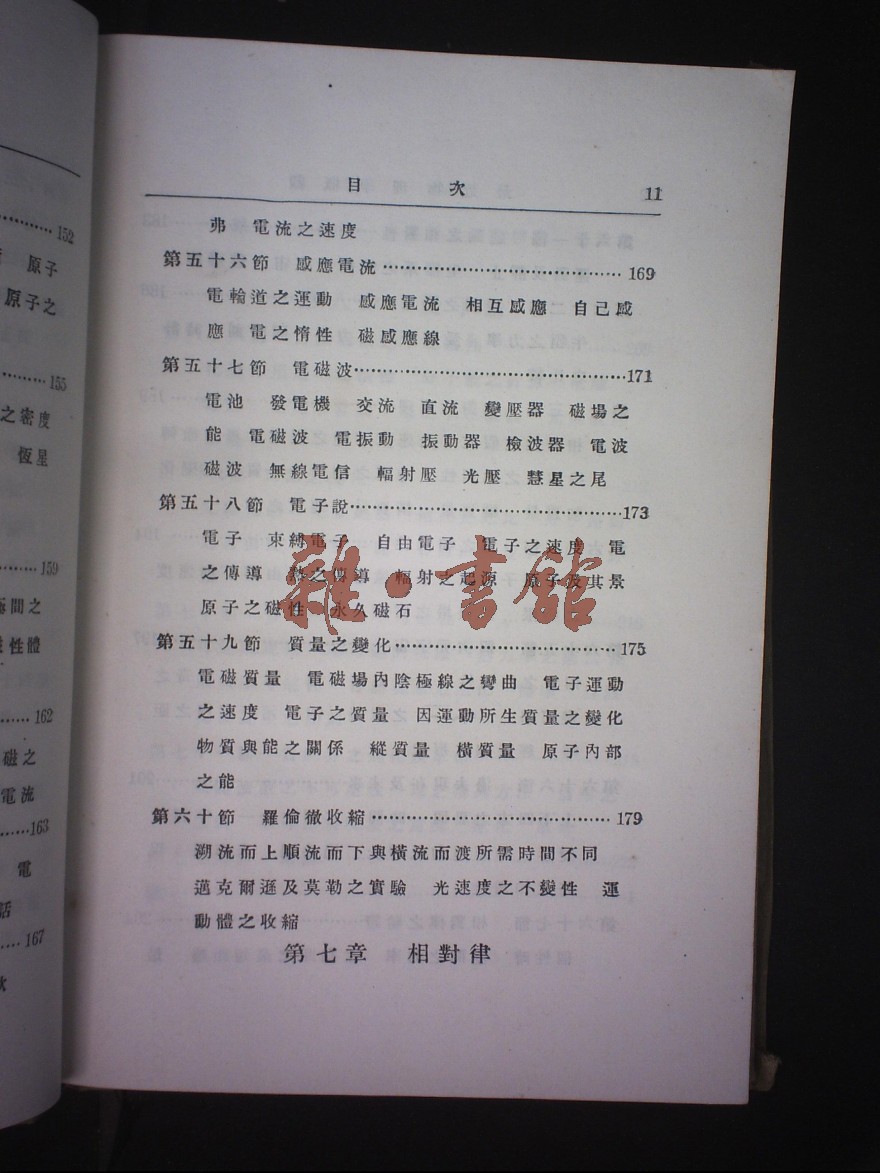 152
原子
原子之
155
之密度
恆星
159
間之
性體
162
磁之
電流
163
電
話
167
目次 11
弗 電流之速度
第五十六節 感應電流……………………169
電輪道之運動 感應電流 相互感應二 自己感
應 電之惰性 磁感應線
第五十七節 電磁波………………………171
電池 發電機 交流 直流 變壓器 磁場之
能 電磁波 電振動 振動器 檢波器 電波
磁波 無線電信 輻射壓 光壓 慧星之尾
第五十八節 電子說………………………173
電子 束縛電子 自由電子 電子之速度 電
之傳導 熱之傳導 輻射之起源 原子及其景
原子之磁性 永久磁石
雜·書館
第五十九節 質量之變化…………………175
電磁質量 電磁場內陰極線之彎曲 電子運動
之速度 電子之質量 因運動所生質量之變化
物質與能之關係 縱質量 橫質量 原子內部
之能
第六十節 羅倫徹收縮……………………179
溯流而上順流而下與橫流而渡所需時間不同
邁克爾遜及莫勒之實驗 光速度之不變性 運
動體之收縮
第七章 相對律